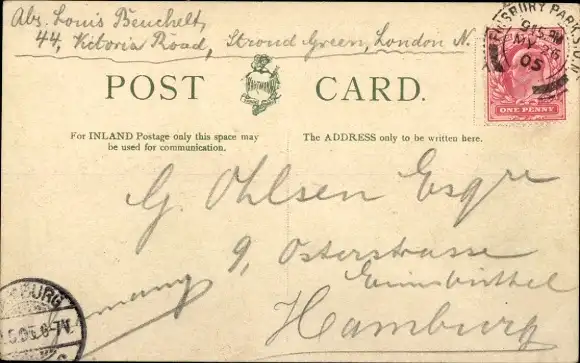 Abs. Louis Beuchelt,
44, Victoria Road, Stroud Green, London N.
FINSBURY PARK
MY 26
05
ONE PENNY
POST CARD.
For INLAND Postage only this space may
be used for communication.
The ADDRESS only to be written here.
G. Ohlsen Esqre
9, Osterstrasse
Eimsbüttel
Hamburg
Germany